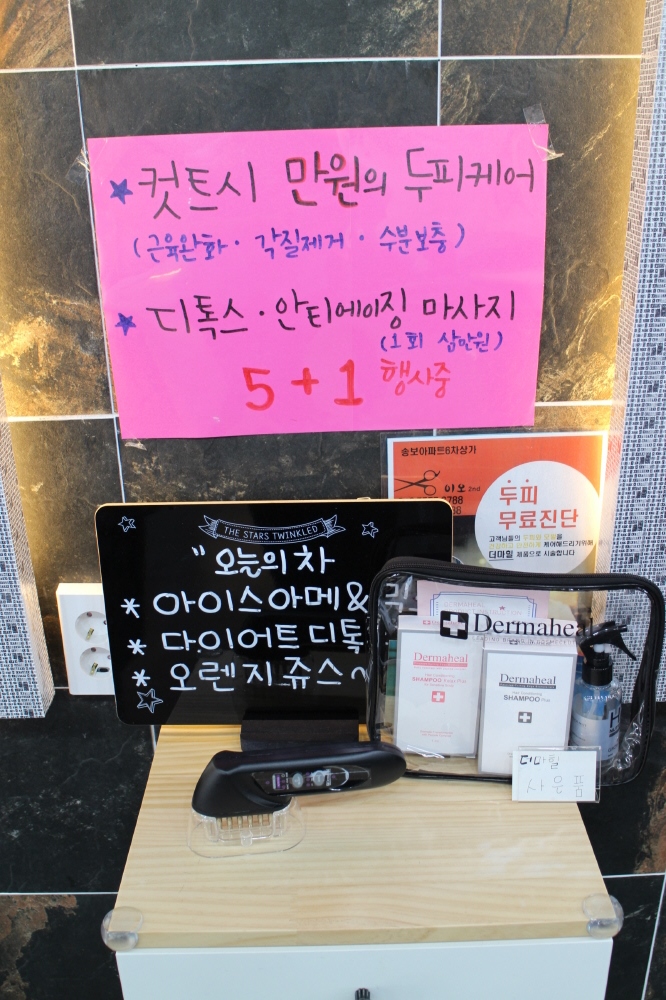 ★ 컷트시 만원의 두피케어
(근육완화 · 각질제거 · 수분보충)
★ 디톡스 · 안티에이징 마사지
(1회 삼만원)
5+1 행사중
송보아파트6차상가
이오 2nd
두피
무료진단
더마힐 제품으로 시술합니다
THE STARS TWINKLED
" 오늘의 차
* 아이스아메 &
* 다이어트 디톡
* 오렌지 쥬스 ~
Dermaheal
Dermaheal
SHAMPOO
Dermaheal
SHAMPOO Plus
더마힐
사은품